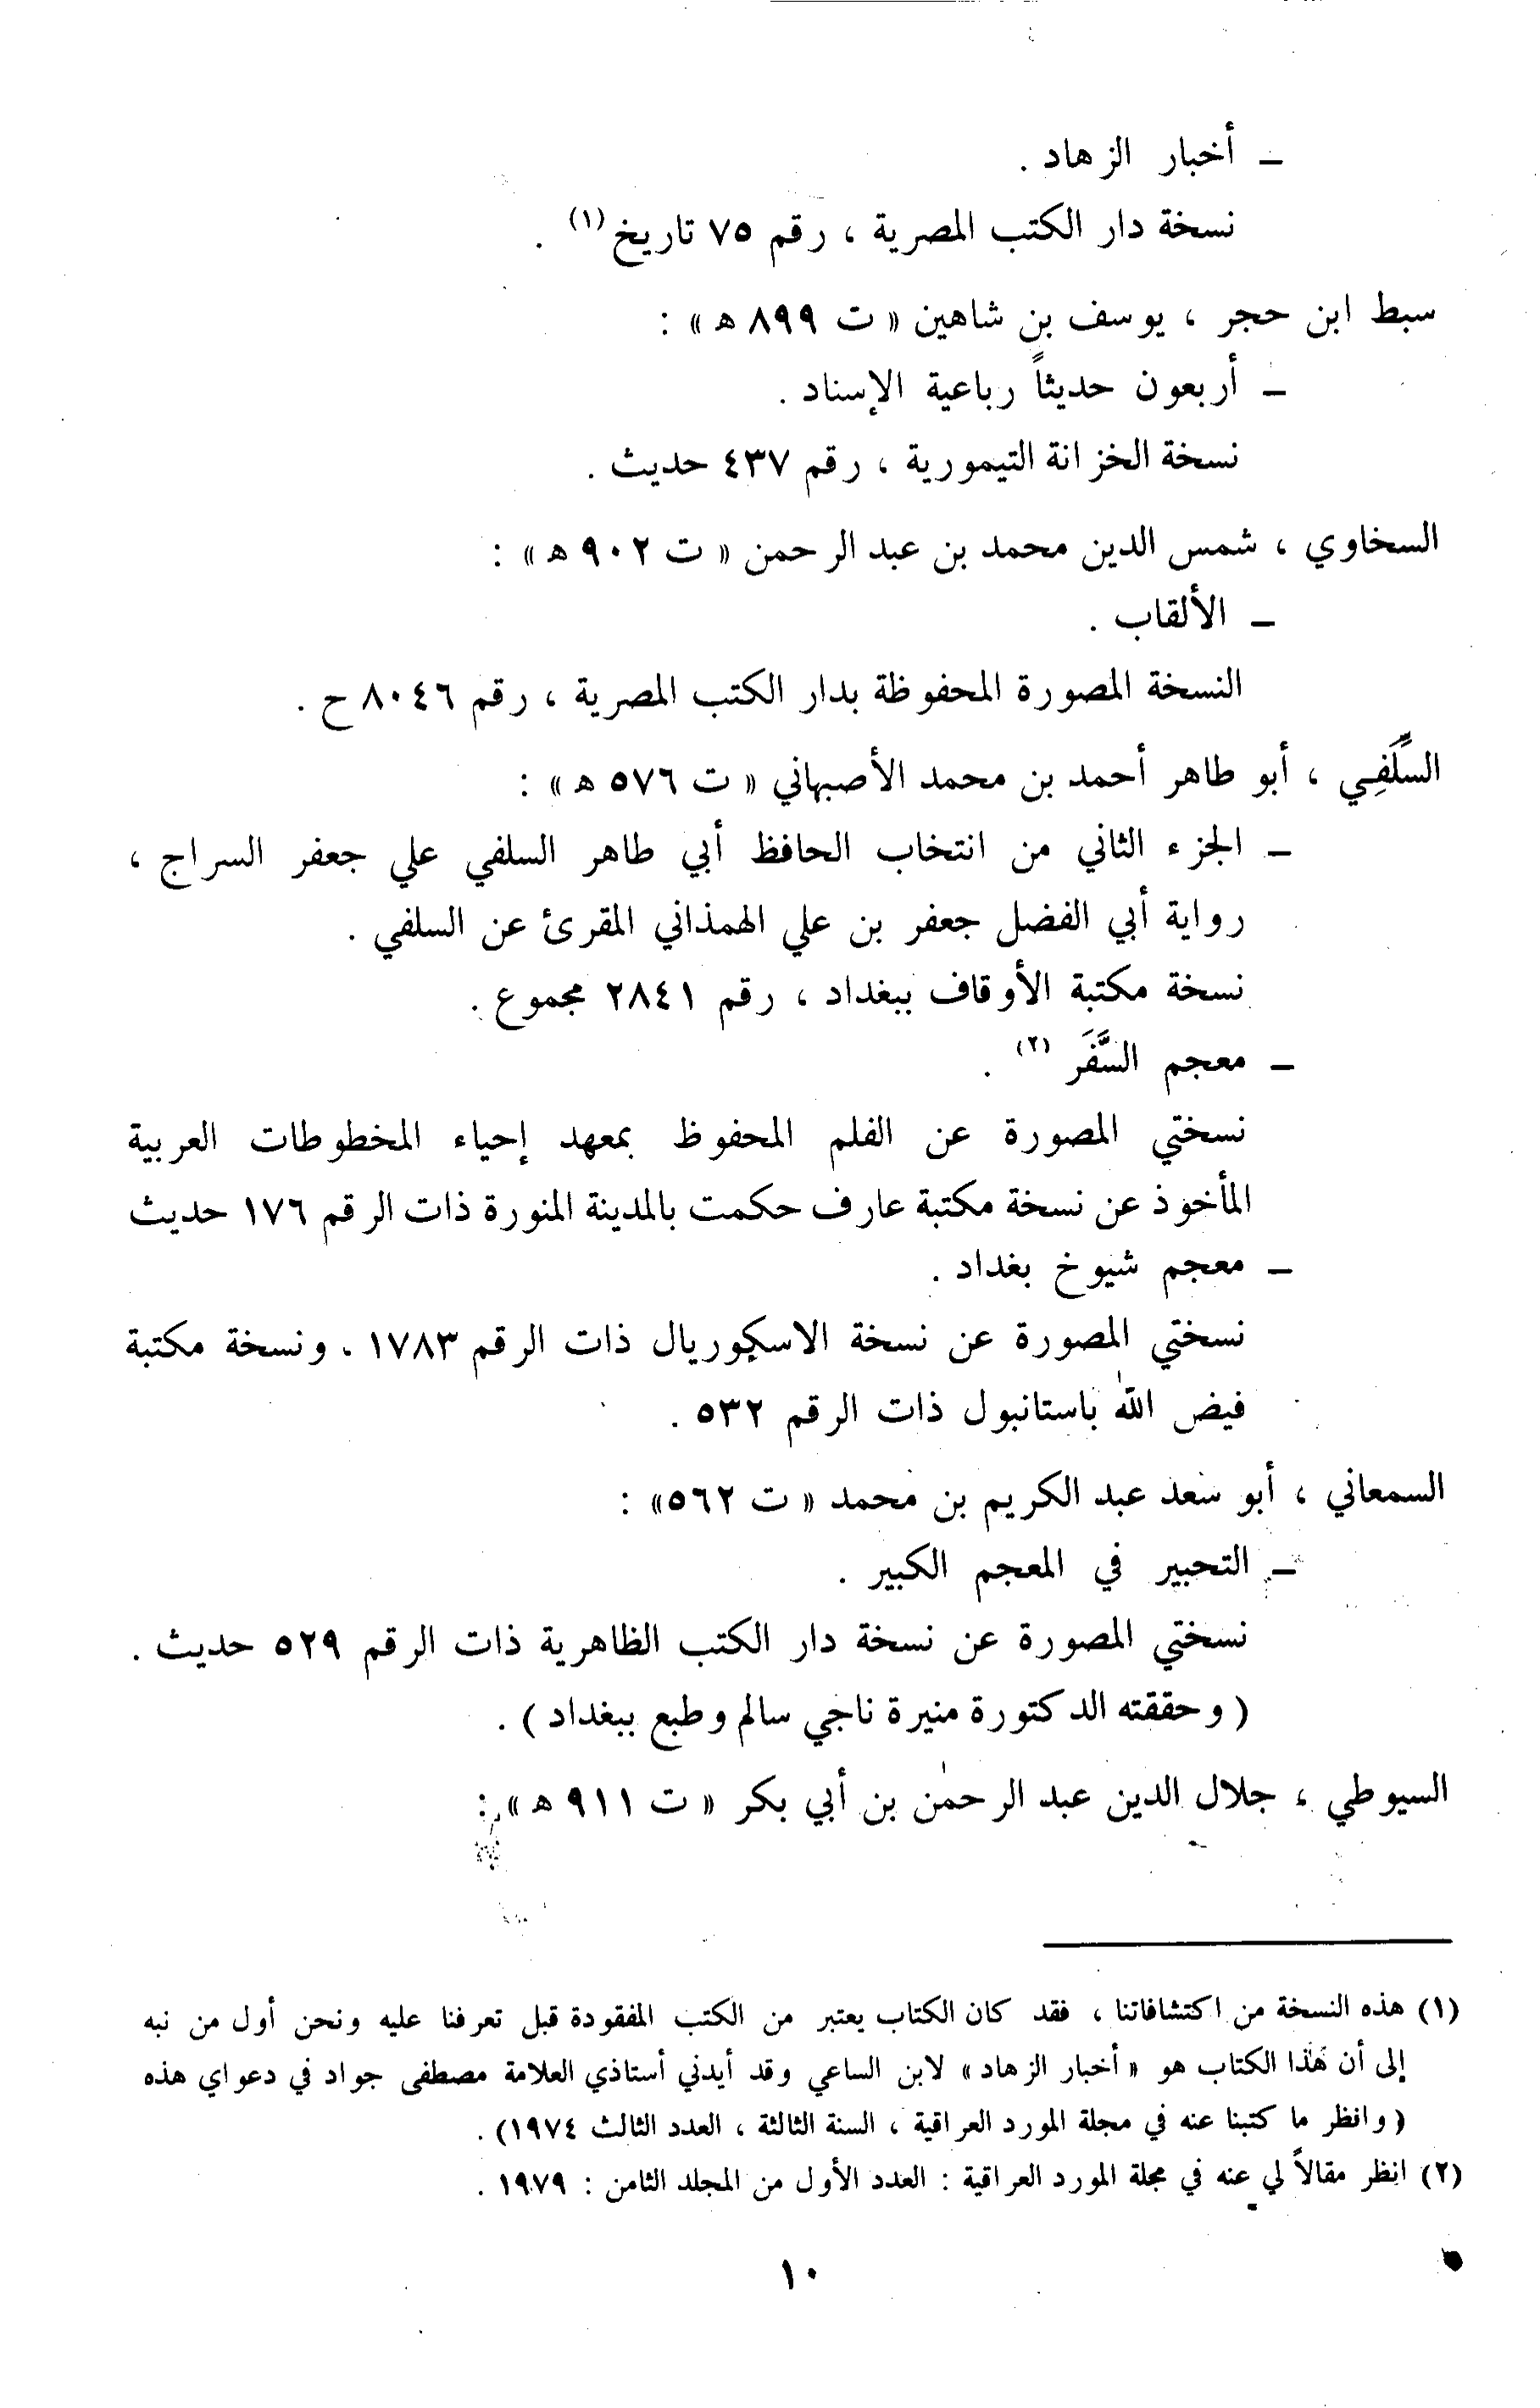 ـ أخبار الزهاد .
نسخة دار الكتب المصرية ، رقم ٧٥ تاريخ (١) .
سبط ابن حجر ، يوسف بن شاهين « ت ٨٩٩ ه » :
ـ أربعون حديثاً رباعية الإسناد .
نسخة الخزانة التيمورية ، رقم ٤٣٧ حديث .
السخاوي ، شمس الدين محمد بن عبد الرحمن « ت ٩٠٢ ه » :
ـ الألقاب .
النسخة المصورة المحفوظة بدار الكتب المصرية ، رقم ٨٠٤٦ ح .
السِّلَفِي ، أبو طاهر أحمد بن محمد الأصبهاني « ت ٥٧٦ ه » :
ـ الجزء الثاني من انتخاب الحافظ أبي طاهر السلفي علي جعفر السراج ،
رواية أبي الفضل جعفر بن علي الهمذاني المقرئ عن السلفي .
نسخة مكتبة الأوقاف ببغداد ، رقم ٢٨٤١ مجموع .
ـ معجم السَّفَر (٢) .
نسختي المصورة عن الفلم المحفوظ بمعهد إحياء المخطوطات العربية
المأخوذ عن نسخة مكتبة عارف حكمت بالمدينة المنورة ذات الرقم ١٧٦ حديث
ـ معجم شيوخ بغداد .
نسختي المصورة عن نسخة الاسكوريال ذات الرقم ١٧٨٣ . ونسخة مكتبة
فيض الله باستانبول ذات الرقم ٥٣٢ .
السمعاني ، أبو سعد عبد الكريم بن محمد « ت ٥٦٢» :
ـ التحبير في المعجم الكبير .
نسختي المصورة عن نسخة دار الكتب الظاهرية ذات الرقم ٥٢٩ حديث .
( وحققته الدكتورة منيرة ناجي سالم وطبع ببغداد ) .
السيوطي ، جلال الدين عبد الرحمٰن بن أبي بكر « ت ٩١١ ه » :
(١) هذه النسخة من اكتشافاتنا ، فقد كان الكتاب يعتبر من الكتب المفقودة قبل تعرفنا عليه ونحن أول من نبه
إلى أن هٰذا الكتاب هو « أخبار الزهاد » لابن الساعي وقد أيدني أستاذي العلامة مصطفى جواد في دعواي هذه
( وانظر ما كتبنا عنه في مجلة المورد العراقية ، السنة الثالثة ، العدد الثالث ١٩٧٤) .
(٢) انظر مقالاً لي عنه في مجلة المورد العراقية : العدد الأول من المجلد الثامن : ١٩٧٩ .
١٠